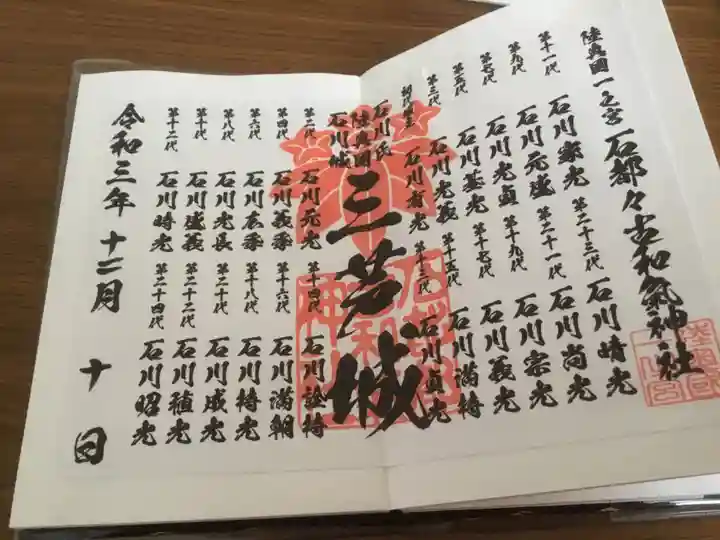 陸奥国一之宮 石都々古和氣神社
第十一代 石川家光 第二十三代 石川晴光
第九代 石川元盛 第二十一代 石川尚光
第七代 石川光貞 第十九代 石川宗光
第五代 石川基光 第十七代 石川義光
第三代 石川光義 第十五代 石川満持
初代城主 石川有光 第十三代 石川貞光
石川氏
陸奥国
石川城
三芦城
第二代 石川元光 第十四代 石川詮持
第四代 石川義季 第十六代 石川満朝
第六代 石川広季 第十八代 石川持光
第八代 石川光長 第二十代 石川成光
第十代 石川盛義 第二十二代 石川稙光
第十二代 石川時光 第二十四代 石川昭光
令和三年 十二月 十日